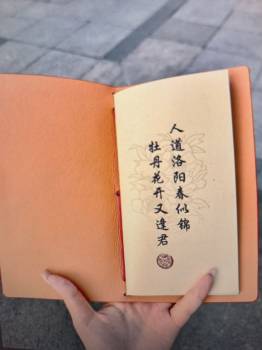 人道洛阳春似锦
牡丹花开又逢君